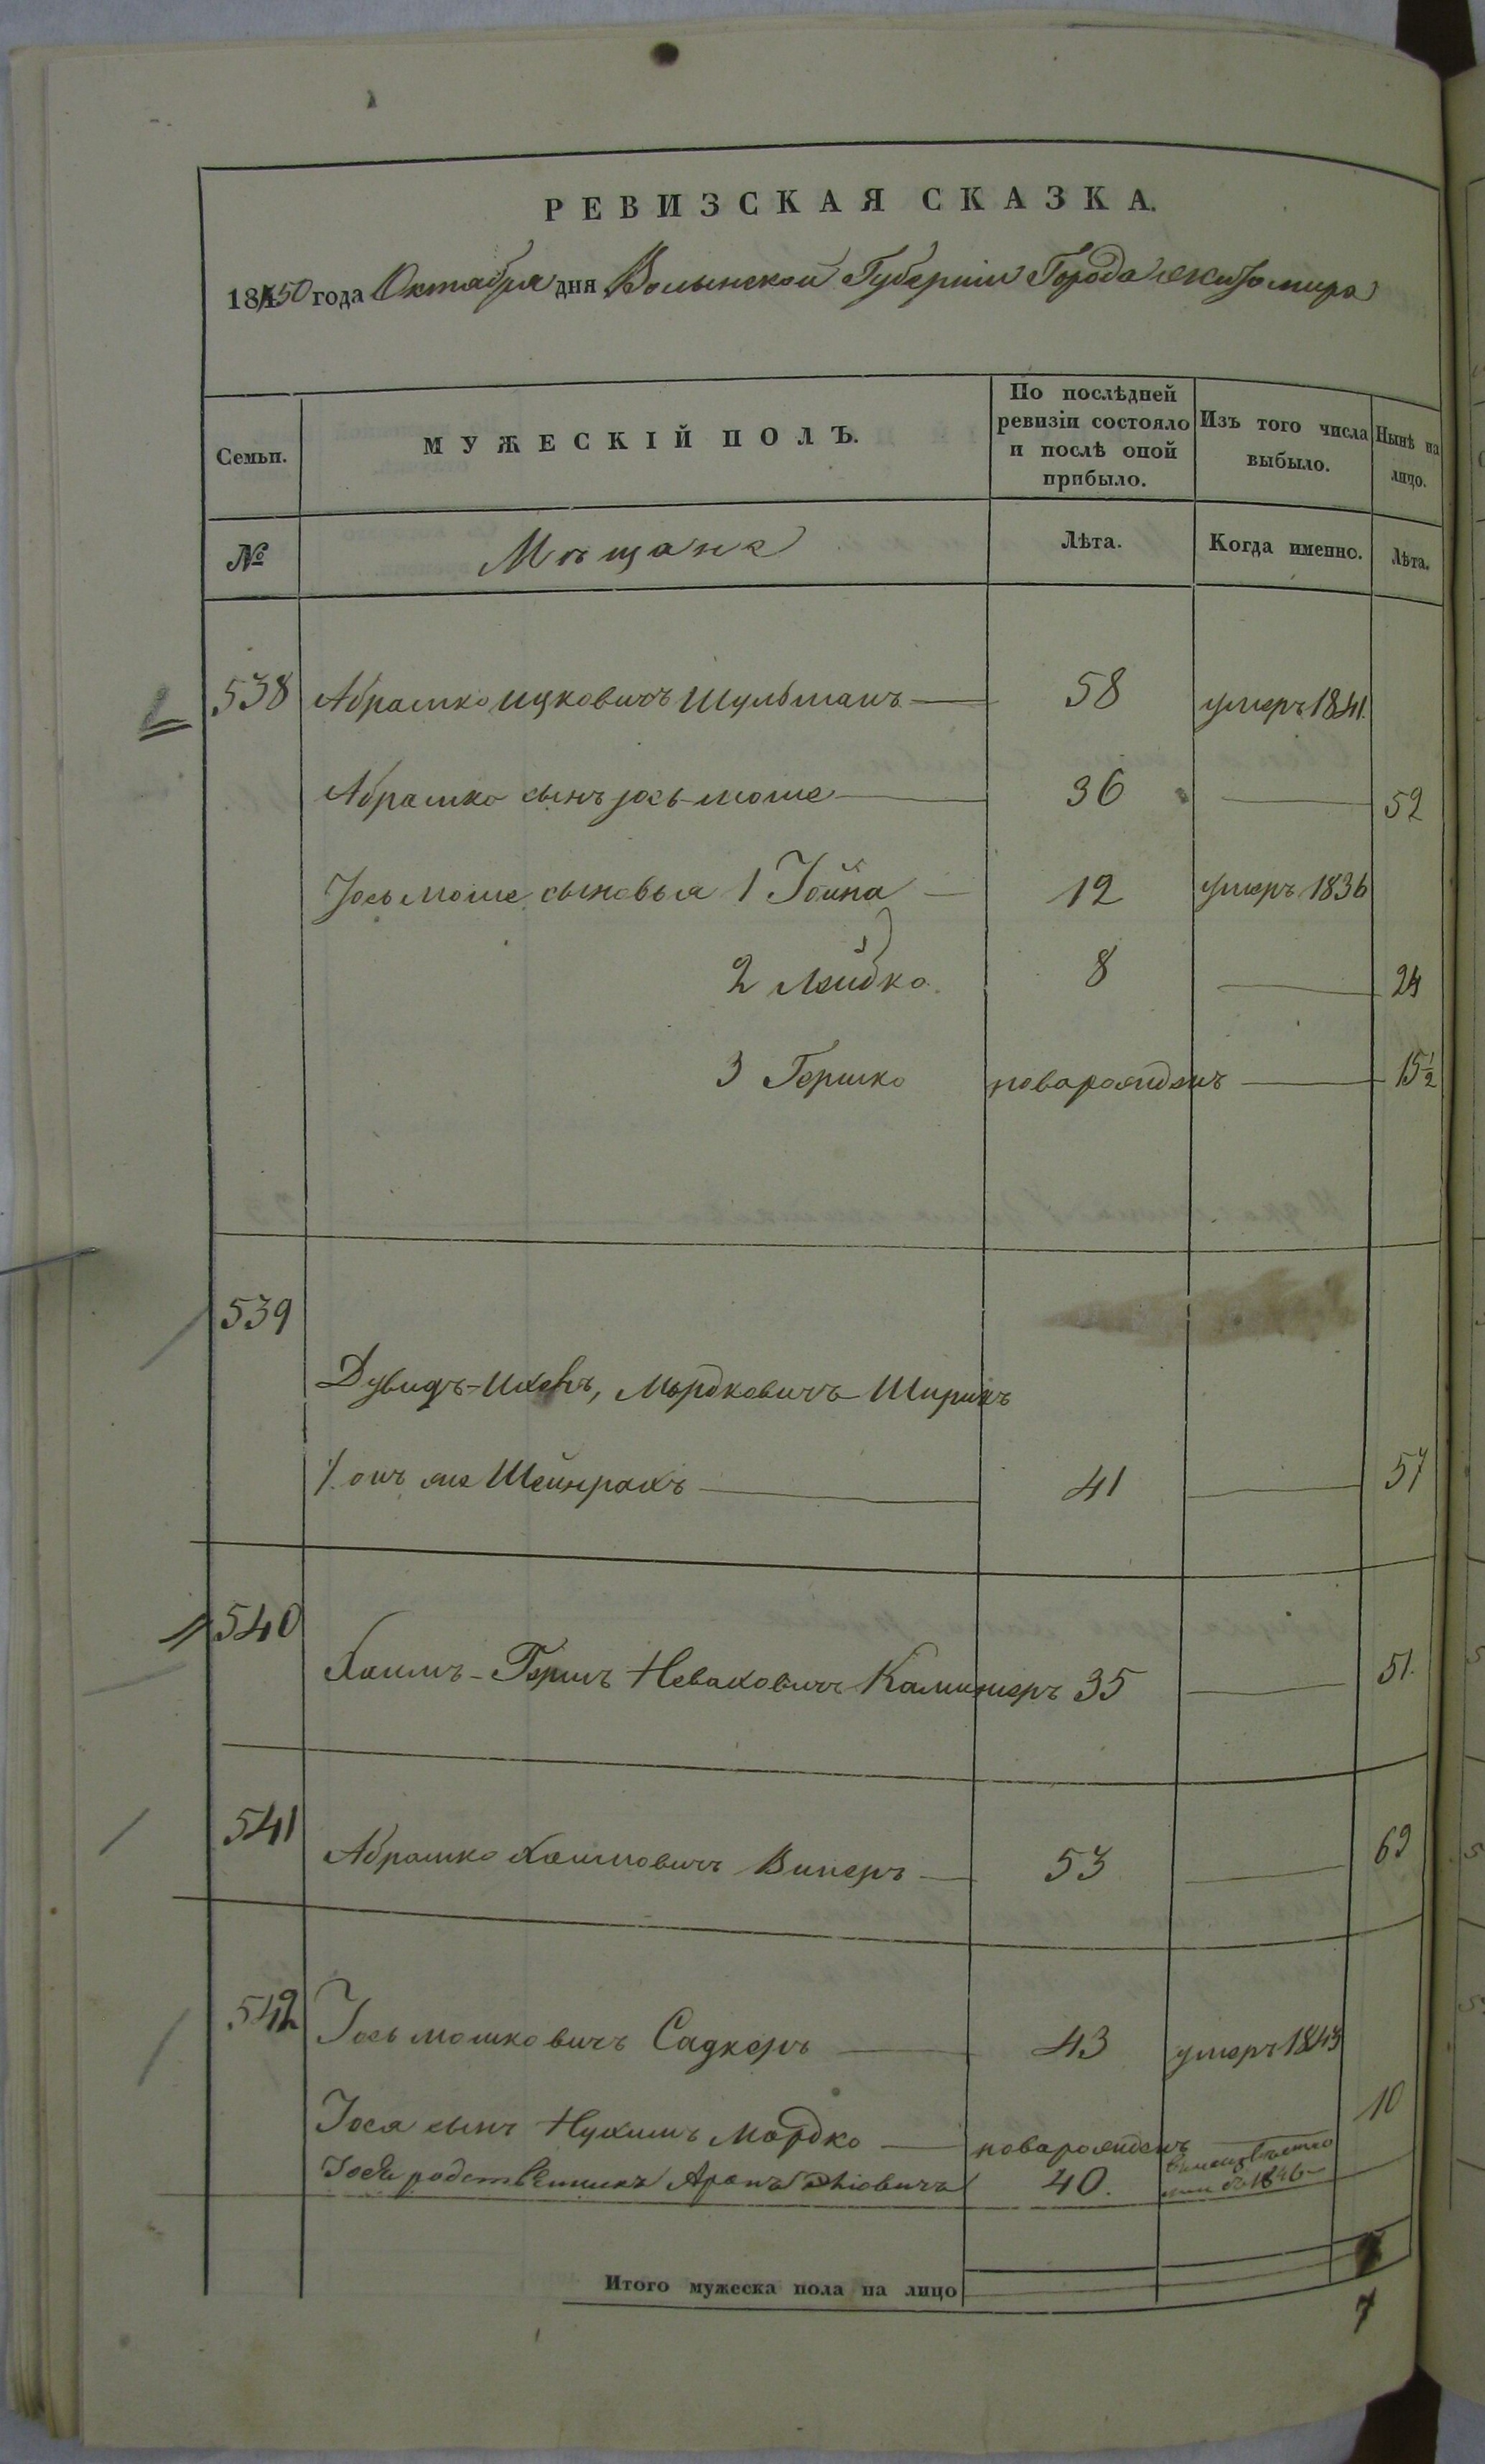 РЕВИЗСКАЯ СКАЗКА.
1850 года Октября дня Волынской Губерніи Города Житомира
Семьи. МУЖЕСКІЙ ПОЛЪ. По послѣдней ревизіи состояло и послѣ оной прибыло. Изъ того числа выбыло. Нынѣ на лицо.
№ Мѣщане Лѣта. Когда именно. Лѣта.
538 Абрамко Ицковичъ Шульманъ 58 умеръ 1841.
Абрамко сынъ Іось-Моше 36 52
Іось Моше сыновья 1 Іойна 12 умеръ 1836
2 Лейбко 8 24
3 Гершко новарожденъ 15½
539
Дувидъ-Ихелъ, Мордковичъ Ширикъ
онъ же Шейнрахъ 41 57
540 Хаимъ-Гершъ Неваховичъ 35 51.
541 Абрамко Хаимовичъ Винеръ 53 69
542 Іось Мошковичъ Садкеръ 43 умеръ 1843
Іося сынъ Нухимъ Мордко новарожденъ 10
Іося родственникъ Аронъ 40. 1846
Итого мужеска пола на лицо
7